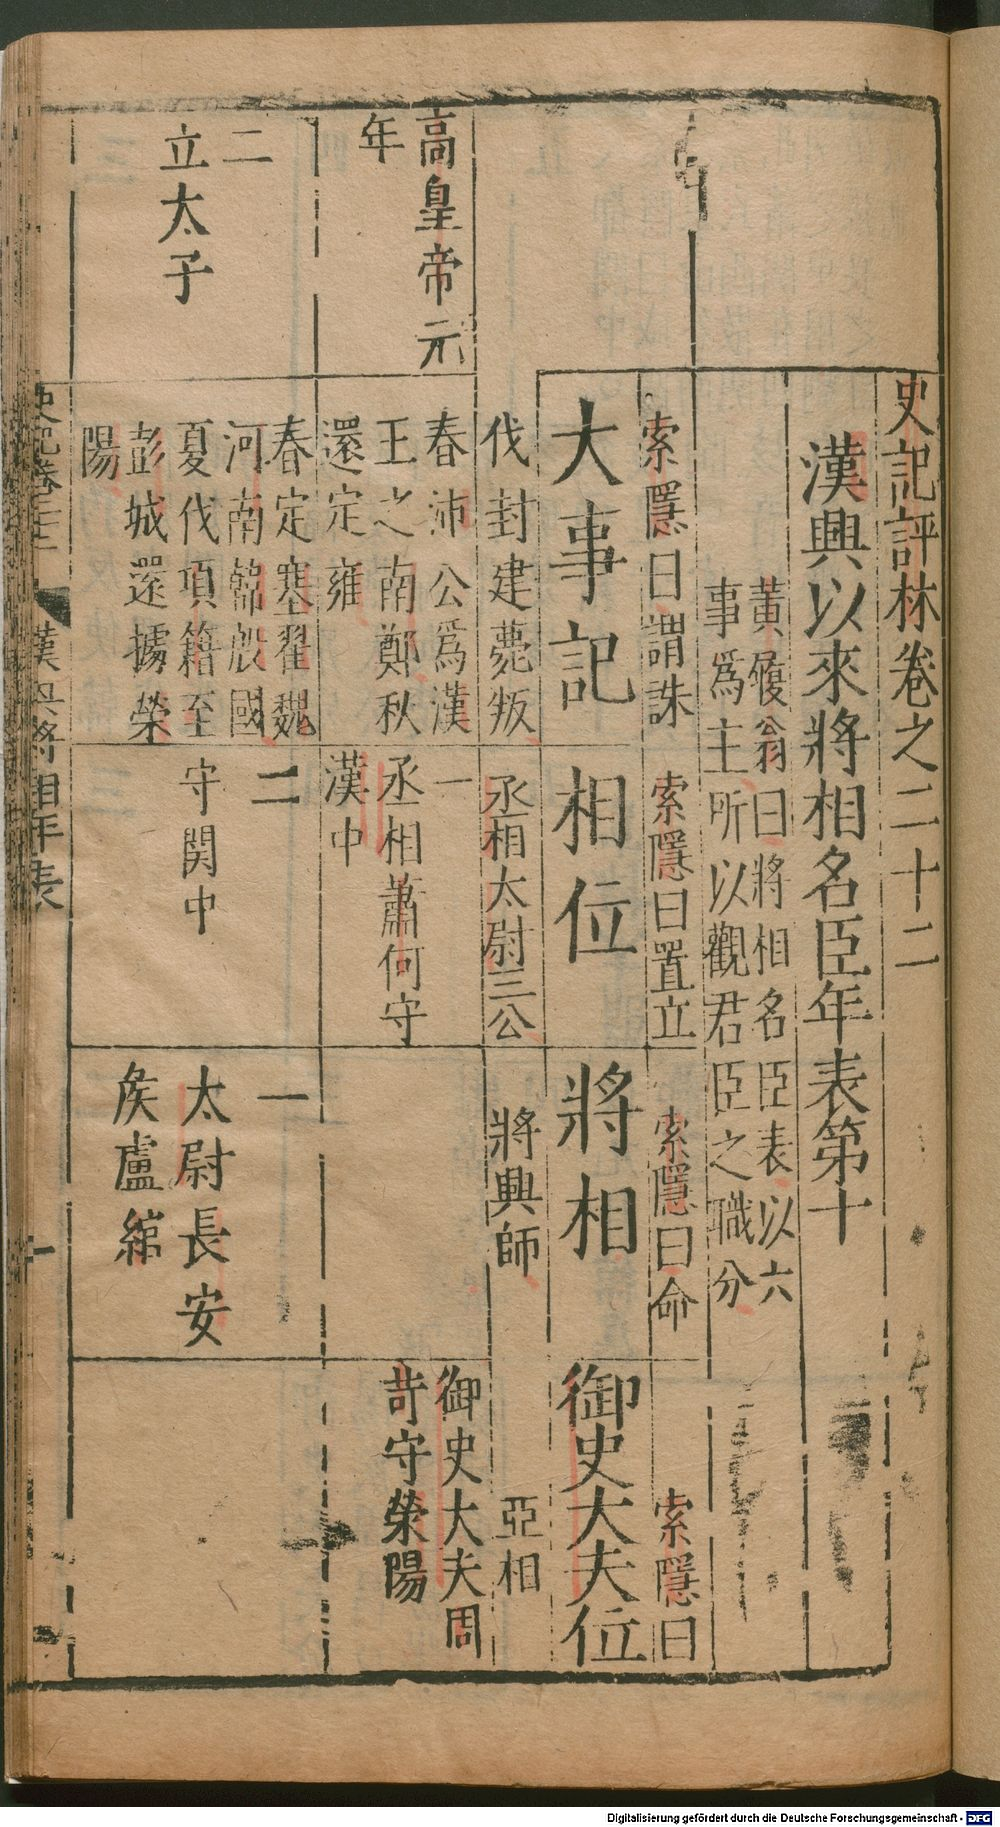 史記評林卷之二十二
漢興以來將相名臣年表第十
黃履翁曰將相名臣表以六
事爲主所以觀君臣之職分
索隱曰謂誅
大事記
伐封建薨叛
索隱曰置立
相位
丞相太尉三公
索隱曰命
將相
將興師
索隱曰
御史大夫位
亞相
高皇帝元
年
春沛公爲漢
王之南鄭秋
還定雍
一
丞相蕭何守
漢中
御史大夫周
苛守榮陽
二
立太子
春定塞翟魏
河南韓殷國
夏伐項籍至
彭城還據榮
陽
二
守関中
一
太尉長安
矦盧綰
史記卷二十二
漢興將相年表
一
Digitalisierung gefördert durch die Deutsche Forschungsgemeinschaft - DFG